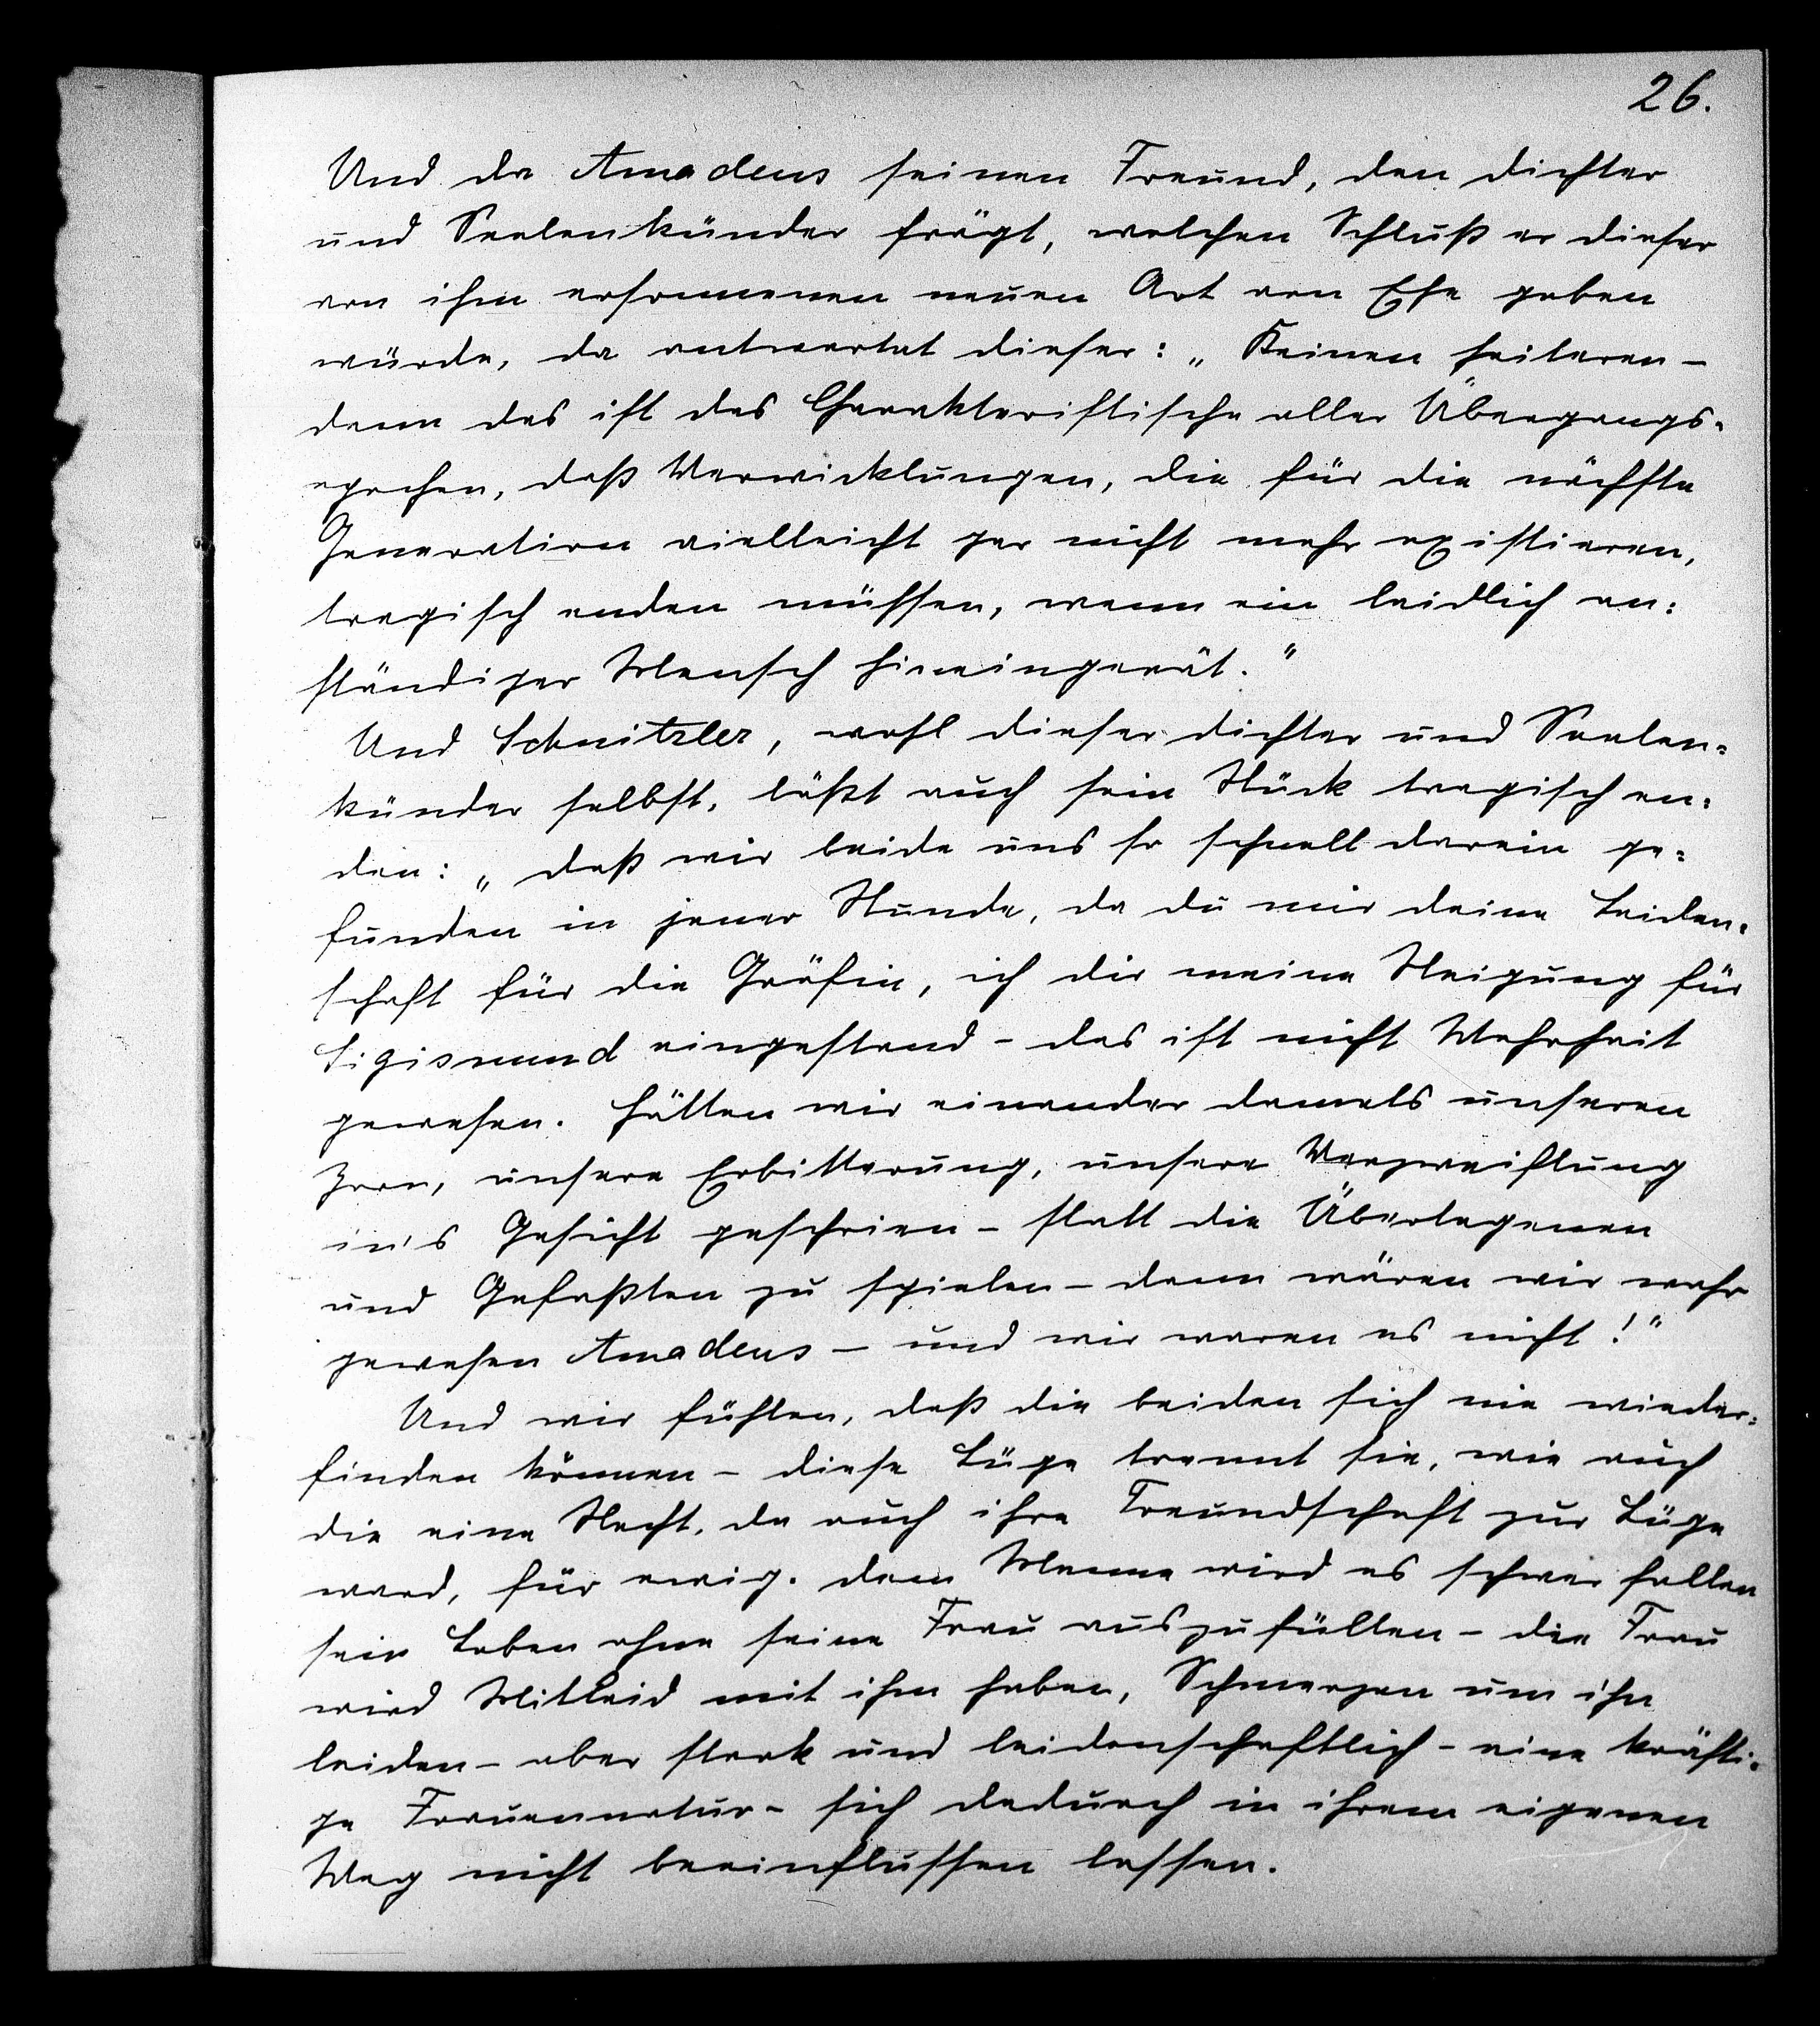 26.
Und da Amadeus seinen Freund, den Dichter
und Seelenkünder frägt, welchen Schluß er dieser
von ihm ersonnenen neuen Art von Ehe geben
würde, da antwortet dieser: „Keinen heiteren -
denn das ist das Charakteristische aller Übergangs-
epochen, daß Verwicklungen, die für die nächste
Generation vielleicht gar nicht mehr existieren,
tragisch enden müssen, wenn ein leidlich an-
ständiger Mensch hineingerät."
Und Schnitzler, wohl dieser Dichter und Seelen-
künder selbst, läßt auch sein Stück tragisch en-
den: „daß wir beide uns so schnell darein ge-
funden in jener Stunde, da du mir deine Leiden-
schaft für die Gräfin, ich dir meine Neigung für
Sigismund eingestand - das ist nicht Wahrheit
gewesen. Hätten wir einander damals unseren
Zorn, unsere Erbitterung, unsere Verzweiflung
in's Gesicht geschrien - statt die Überlegenen
und Gefaßten zu spielen - dann wären wir wahr
gewesen Amadeus - und wir waren es nicht!"
Und wir fühlen, daß die beiden sich nie wieder-
finden können - diese Lüge trennt sie, wie auch
die eine Nacht, da auch ihre Freundschaft zur Lüge
ward, für ewig. Dem Manne wird es schwer fallen
sein Leben ohne seine Frau auszufüllen - die Frau
wird Mitleid mit ihm haben, Schmerzen um ihn
leiden - aber stark und leidenschaftlich - eine kräfti-
ge Frauennatur - sich dadurch in ihrem eigenen
Weg nicht beeinflussen lassen.